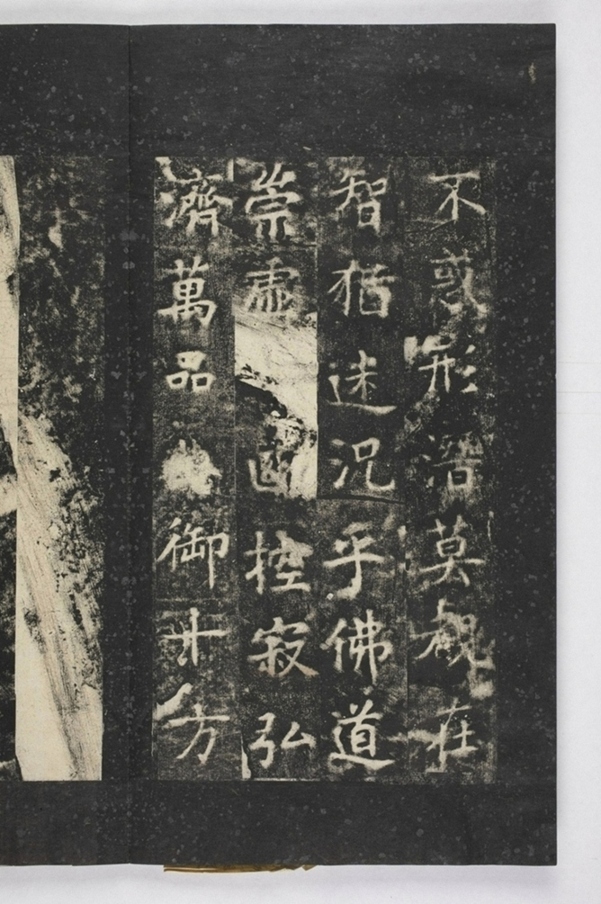 不惑形潛莫覩在
智猶迷況乎佛道
崇虛幽控寂弘
濟萬品御十方